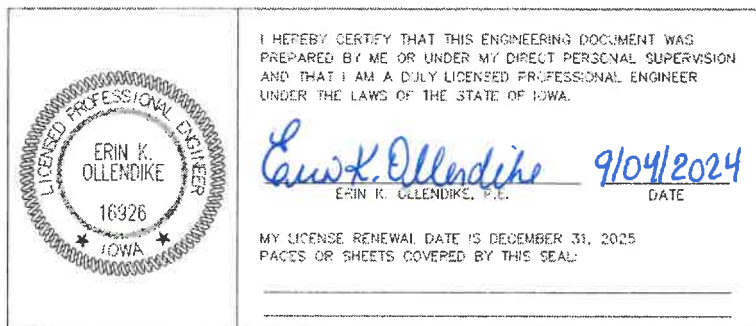 LICENSED PROFESSIONAL ENGINEER
ERIN K.
OLLENDIKE
16926
IOWA
I HEREBY CERTIFY THAT THIS ENGINEERING DOCUMENT WAS
PREPARED BY ME OR UNDER MY DIRECT PERSONAL SUPERVISION
AND THAT I AM A DULY LICENSED PROFESSIONAL ENGINEER
UNDER THE LAWS OF THE STATE OF IOWA.
Erin K. Ollendike 9/04/2024
ERIN K. OLLENDIKE, P.E. DATE
MY LICENSE RENEWAL DATE IS DECEMBER 31, 2025
PAGES OR SHEETS COVERED BY THIS SEAL: